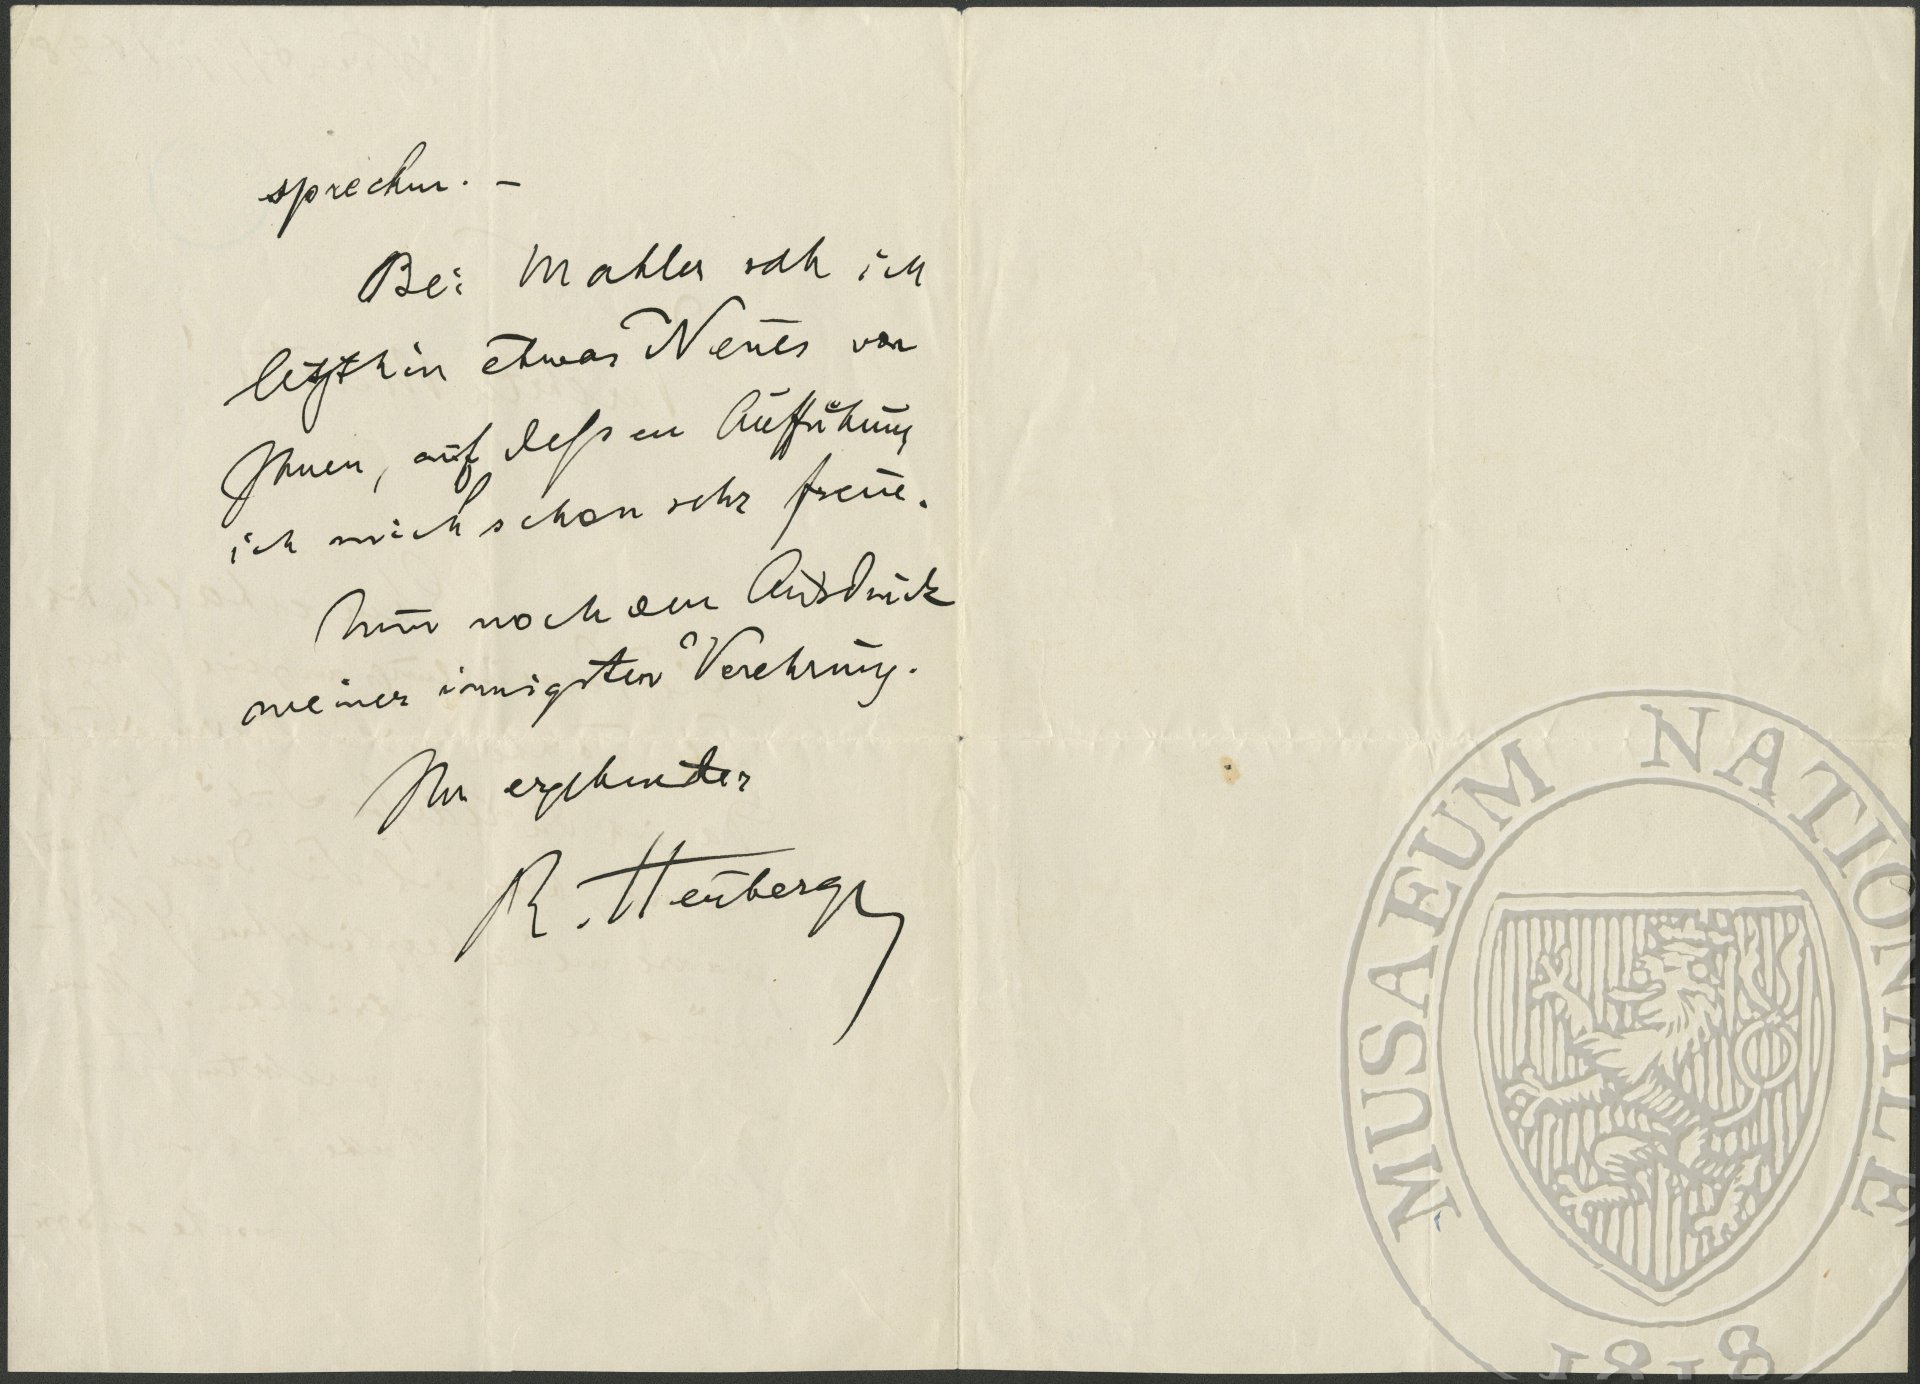 sprechen. –
Bei Mahler sah ich
letzthin etwas Neues von
Ihnen, auf dessen Aufführung
ich mich schon sehr freue.
Nun noch den Ausdruck
meiner innigsten Verehrung.
Ihr ergebenster
R. Heuberger
MUSAEUM NATIONALE
1818